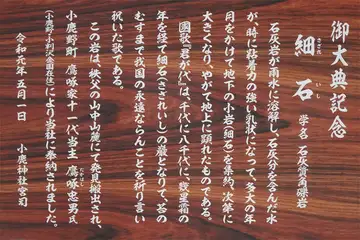 御大典記念
細石
さざれ いし
学名 石灰質角礫岩
石灰岩が雨水に溶解し、石灰分を含んだ水
が、時に粘着力の強い乳状になって多大の年
月をかけて地下の小岩(細石)を集め、次第に
大きくなり、やがて地上に顕れたものである。
国歌『君が代』は、千代に八千代に、幾星霜の
年を経て細石(さざれいし)の巌となりて、苔の
むすまで我国の永遠ならんことを祈り言い
祝いた歌である。
この岩は、秩父の山中山麓にて発見搬出され、
小鹿野町 鷹啄家十一代当主 鷹啄忠男氏
(小鹿野町列人会副在住)により当社に奉納されました。
令和元年五月一日
小鹿神社宮司